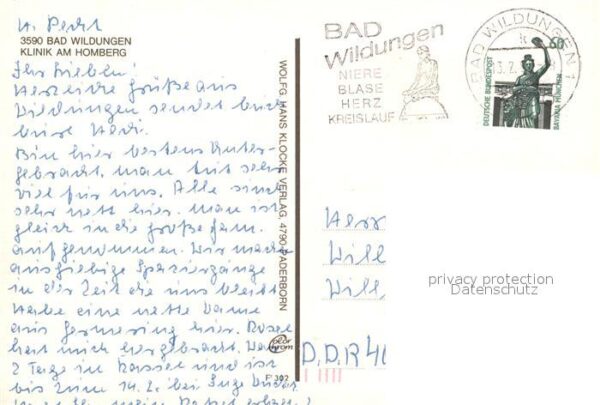 3590 BAD WILDUNGEN
KLINIK AM HOMBERG
Ihr Lieben!
Herzliche Grüße aus
Wildungen sendet Euch
Eure Hedi.
Bin hier bestens Unter-
gebracht, man tut sehr
viel für uns. Alle sind
sehr nett hier. man ist
gleich in die große Fam.
aufgenommen. Wir machen
ausgiebige Spaziergänge
in der Zeit die uns bleibt
Habe eine nette Dame
aus hier.
hat mich hergebracht.
2 Tage in Kassel und ist
bis zum 14.2. bei
WOLFG. HANS KLOCKE VERLAG, 4790 PADERBORN
F 302
BAD
Wildungen
NIERE
BLASE
HERZ
KREISLAUF
BAD WILDUNGEN 1
60
DEUTSCHE BUNDESPOST
BAVARIA MÜNCHEN
Will
Will
D.D.R 4
privacy protection
Datenschutz